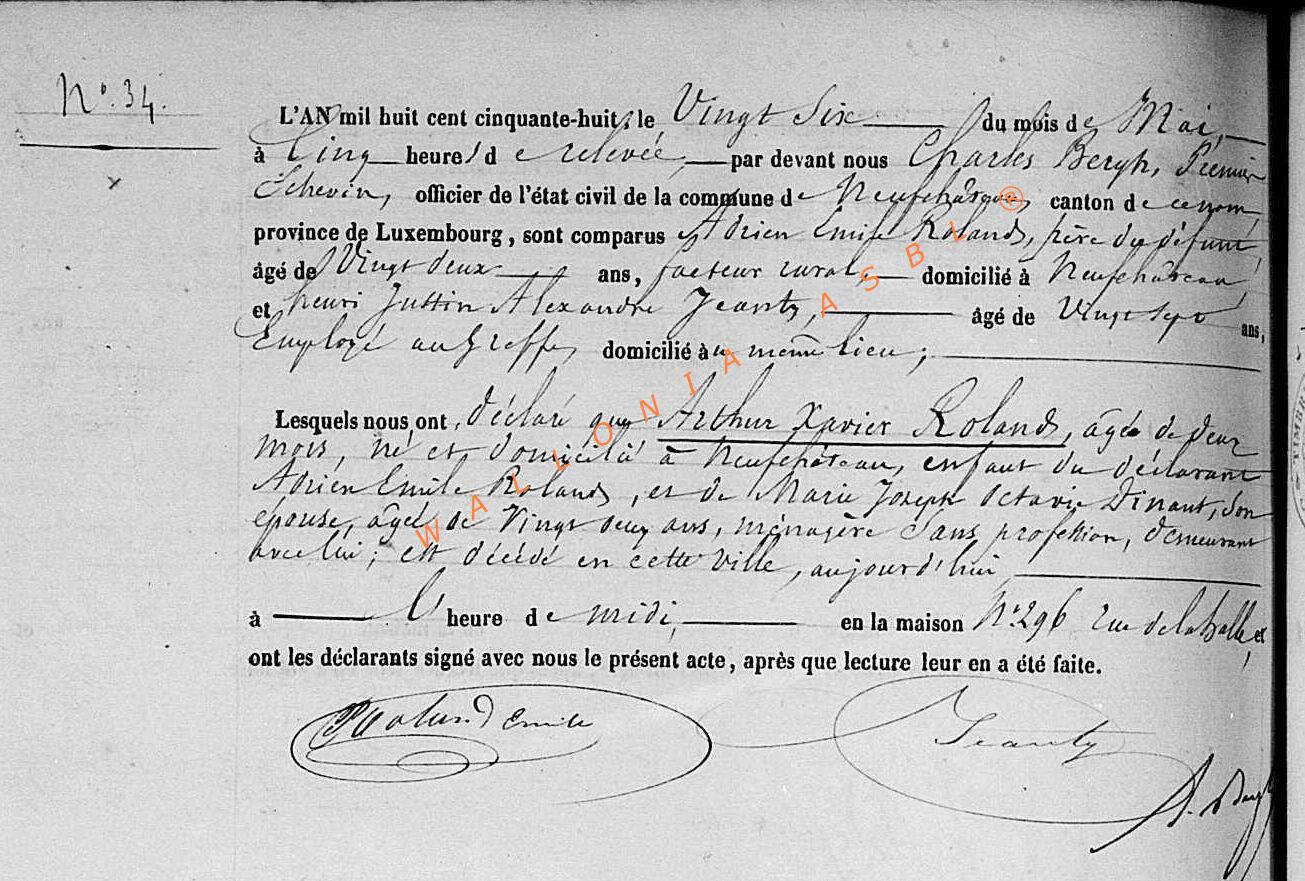 N° 34.
L'AN mil huit cent cinquante-huit, le Vingt Six du mois de Mai,
à Cinq heures de relevée, par devant nous Charles Bergh, Premier
Echevin, officier de l'état civil de la commune de Neufchâteau, canton de ce nom,
province de Luxembourg, sont comparus Adrien Emile Roland, père du défunt,
âgé de Vingt deux ans, facteur rural, domicilié à Neufchâteau,
et henri Justin Alexandre Jeanty, âgé de Vingt sept ans,
Employé au Greffe, domicilié au même lieu;
Lesquels nous ont déclaré que Arthur Xavier Roland, âgé de deux
mois, né et domicilié à Neufchâteau, enfant du déclarant
Adrien Emile Roland, et de Marie Joseph Octavie Dinant, son
epouse, âgée de Vingt deux ans, ménagère sans profession, demeurant
avec lui; est décédé en cette Ville, aujourd'hui
à l'heure de midi, en la maison N° 296 rue de la halle, et
ont les déclarants signé avec nous le présent acte, après que lecture leur en a été faite.
Roland Emile Jeanty
WALLONIA ASBL ®